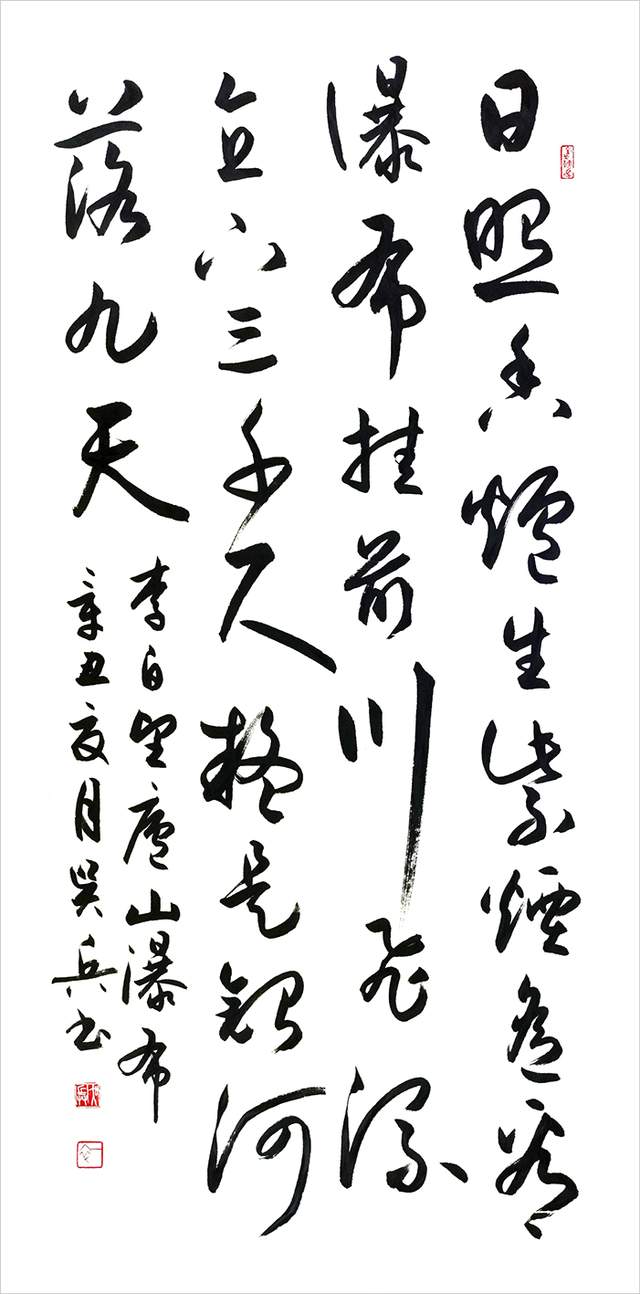 日照香爐生紫煙遙看
瀑布挂前川飛流
直下三千尺疑是銀河
落九天
李白望廬山瀑布
辛丑夏月吳兵書